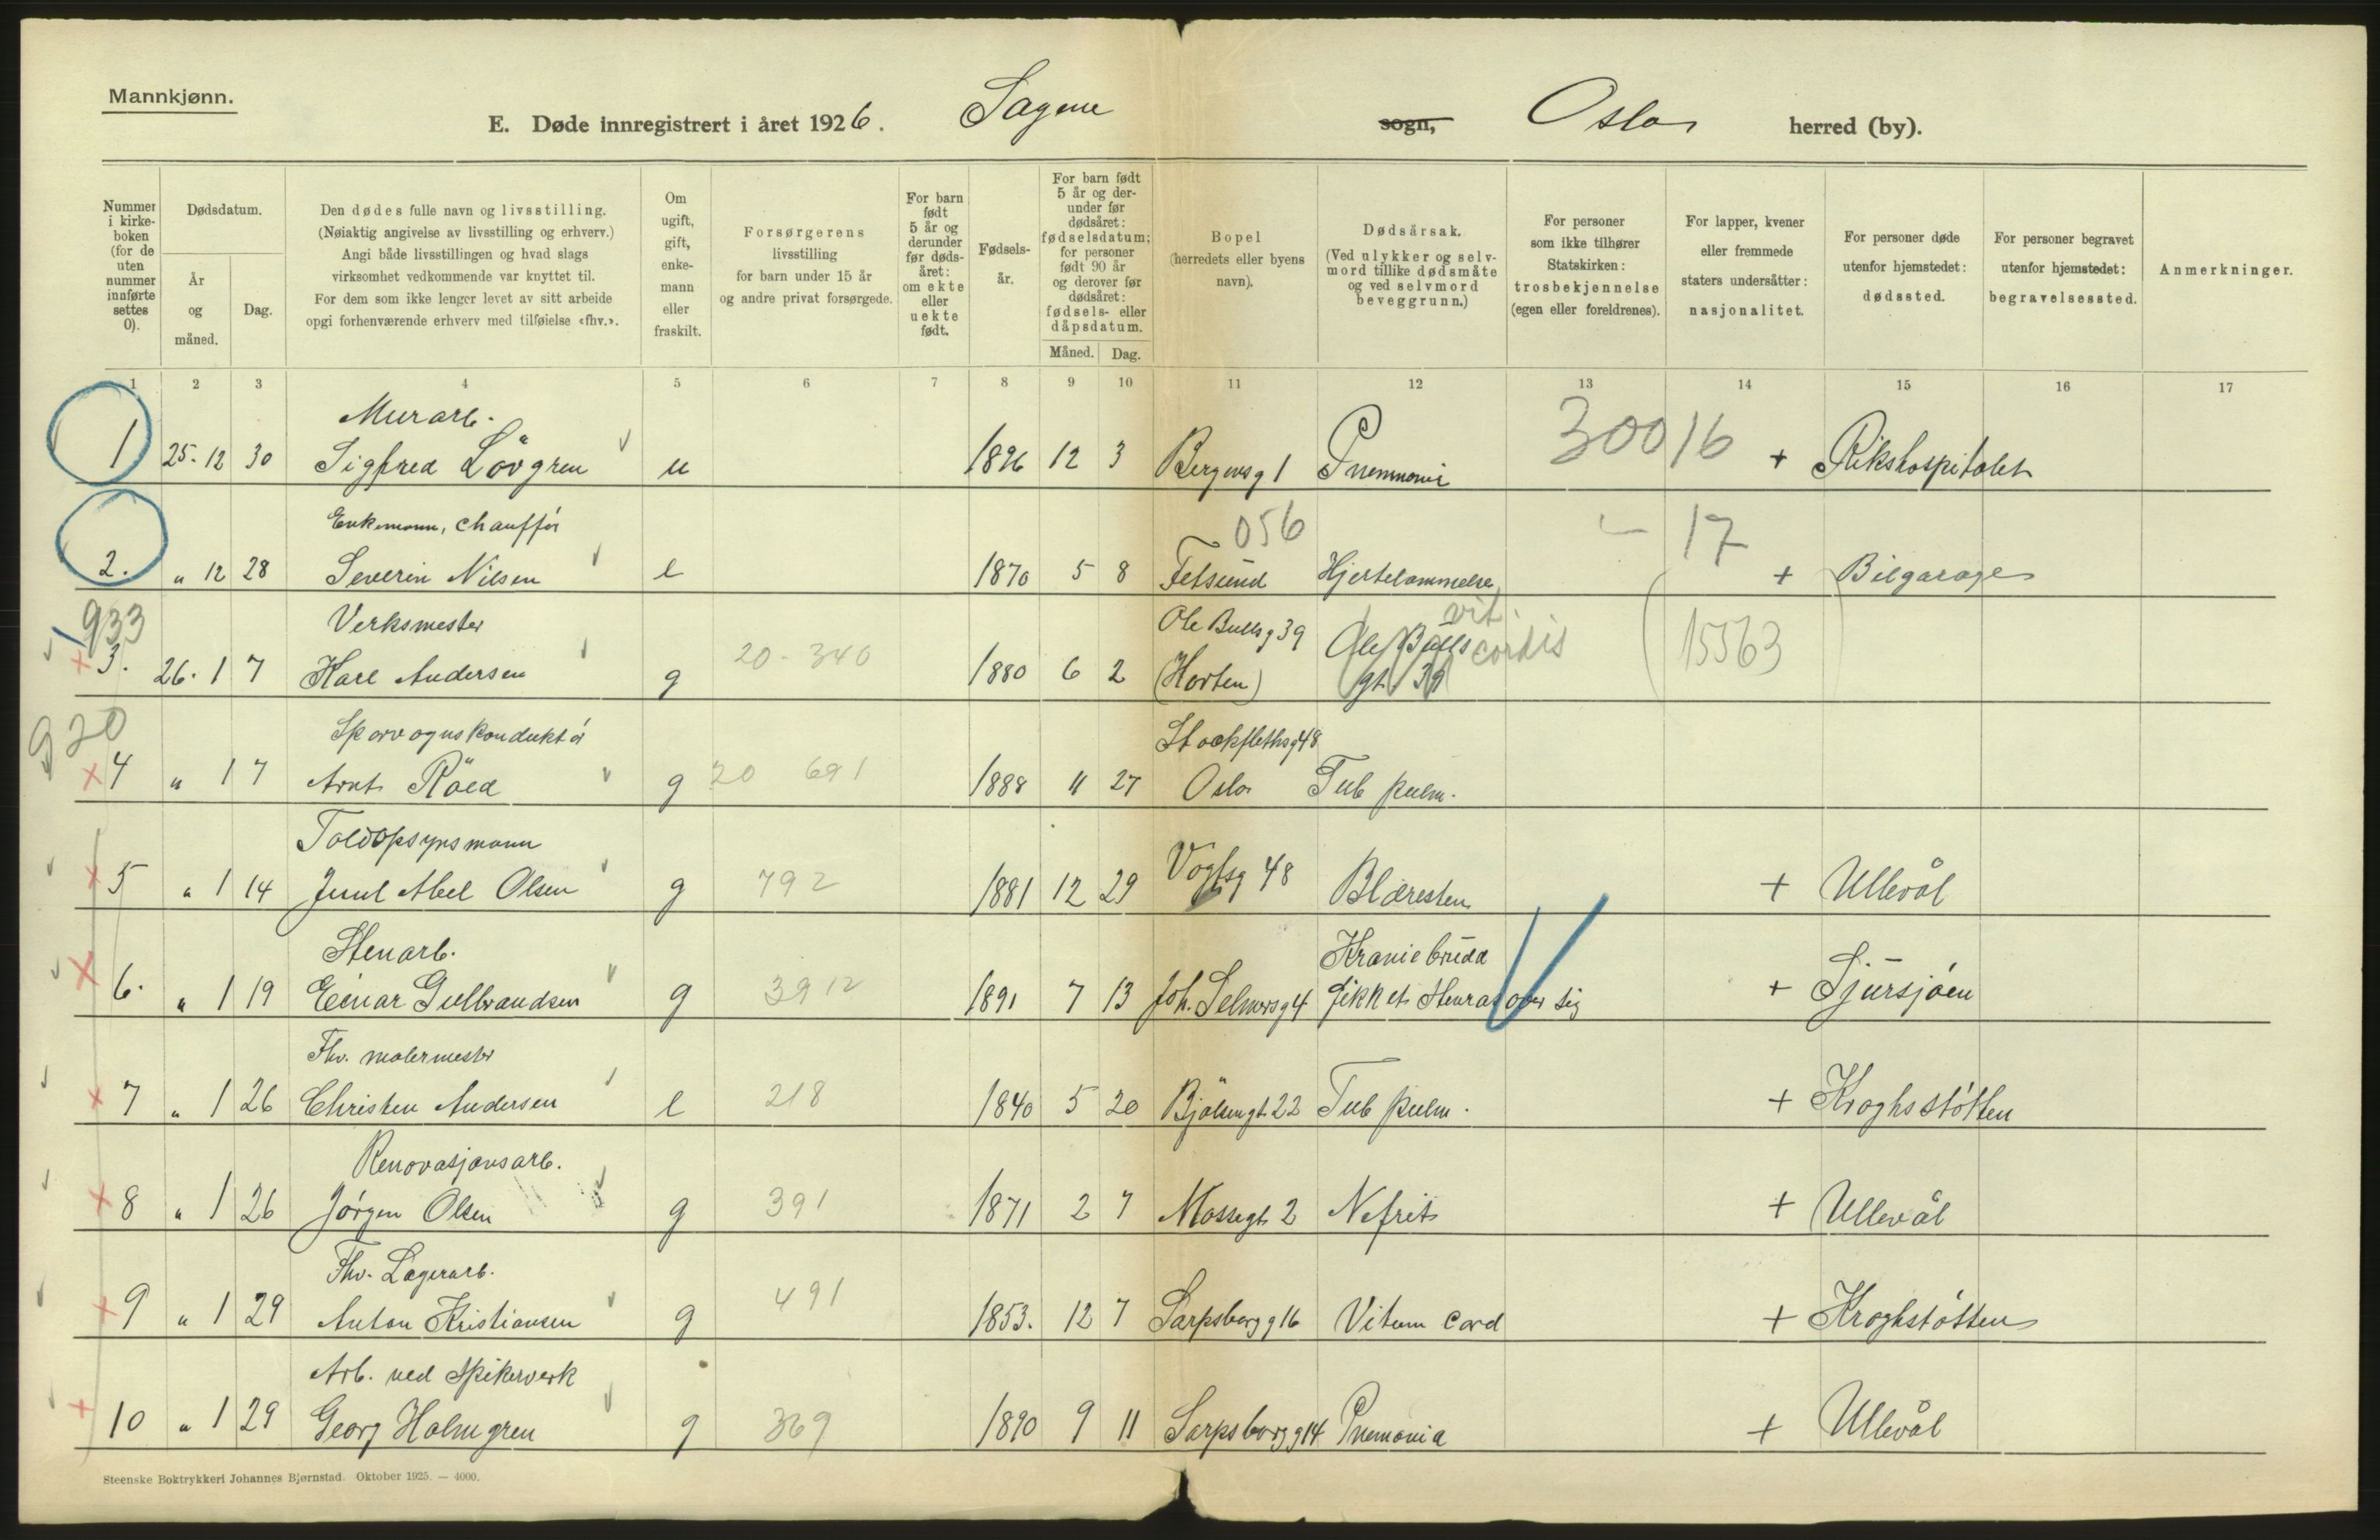 Mannkjønn.
E. Døde innregistrert i året 1926. Sagene sogn, Oslo herred (by).
Nummer i kirkeboken (for de uten nummer innførte settes 0).
Dødsdatum.
År og måned.
Dag.
Den dødes fulle navn og livsstilling.
(Nøiaktig angivelse av livsstilling og erhverv.)
Angi både livsstillingen og hvad slags
virksomhet vedkommende var knyttet til.
For dem som ikke lenger levet av sitt arbeide
opgi forhenværende erhverv med tilføielse «fhv.».
Om ugift, gift, enkemann eller fraskilt.
Forsørgerens livsstilling for barn under 15 år og andre privat forsørgede.
For barn født 5 år og derunder før dødsåret: om ekte eller uekte født.
Fødselsår.
For barn født 5 år og derunder før dødsåret: fødselsdatum; for personer født 90 år og derover før dødsåret: fødsels- eller dåpsdatum.
Måned. Dag.
Bopel (herredets eller byens navn).
Dødsårsak. (Ved ulykker og selvmord tillike dødsmåte og ved selvmord beveggrunn.)
For personer som ikke tilhører Statskirken: trosbekjennelse (egen eller foreldrenes).
For lapper, kvener eller fremmede staters undersåtter: nasjonalitet.
For personer døde utenfor hjemstedet: dødssted.
For personer begravet utenfor hjemstedet: begravelsessted.
Anmerkninger.
1 2 3 4 5 6 7 8 9 10 11 12 13 14 15 16 17
Murarb.
1 25-12 30 Sigfred Lövgren u 1896 12 3 Bergensg 1 Pnemmoni 30016 + Rikshospitalet
Enkemann, chauffór 056 17
2. " 12 28 Severin Nilsen e 1870 5 8 Fetsund Hjertelammelse + Bilgarage
933 Verksmester Ole Bullsg 39 vit.
3. 26-1 7 Karl Andersen g 20-340 1880 6 2 (Horten) Ole Bulls gt. 39 cordis (15563)
920 Sporvognskonduktór Stockflethsg 48
4 " 1 7 Arnt Röed g 20 691 1888 11 27 Oslo Tub pulm.
Toldopsynsmann
5 " 1 14 Juul Abel Olsen g 792 1881 12 29 Vogtsg 48 Blæresten + Ullevål
Stenarb. Kraniebrudd
6. " 1 19 Einar Gulbrandsen g 3912 1891 7 13 Joh. Selmersg 4 fikk et stenras over sig + Sjursjóen
Fhv. malermester
7 " 1 26 Christen Andersen e 218 1840 5 20 Bjölsengt 22 Tub pulm. + Kroghsstótten
Renovasjonsarb.
8 " 1 26 Jórgen Olsen g 391 1871 2 7 Mossegt 2 Nefrit + Ullevål
Fhv. Lagerarb.
9 " 1 29 Anton Kristiansen g 491 1853. 12 7 Sarpsborgg 16 Vitum Cord + Kroghstótten
Arb. ved Spikerverk
10 " 1 29 Georg Holmgren g 369 1890 9 11 Sarpsborgg 14 Pnemonia + Ullevål
Steenske Boktrykkeri Johannes Bjørnstad. Oktober 1925. — 4000.